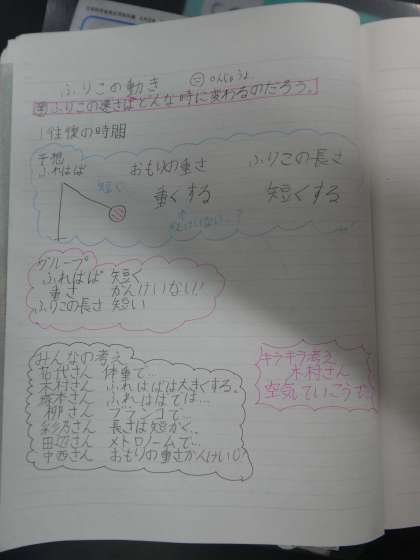 ふりこの動き
問 ふりこの速さはどんな時に変わるのだろう。
1往復の時間
予想
ふれはば おもりの重さ ふりこの長さ
短く 重くする 短くする
グループ
ふれはば 短く
重さ かんけいない!
ふりこの長さ 短い
みんなの考え
さん 体重で…
木村さん ふれはばは大きくする。
塚本さん ふれはばでは…
柳さん ブランコで…
彩乃さん 長さは短かく、
田辺さん メトロノームで…
中西さん おもりの重さかんけい
キラキラ考え
木村さん
空気ていこうで